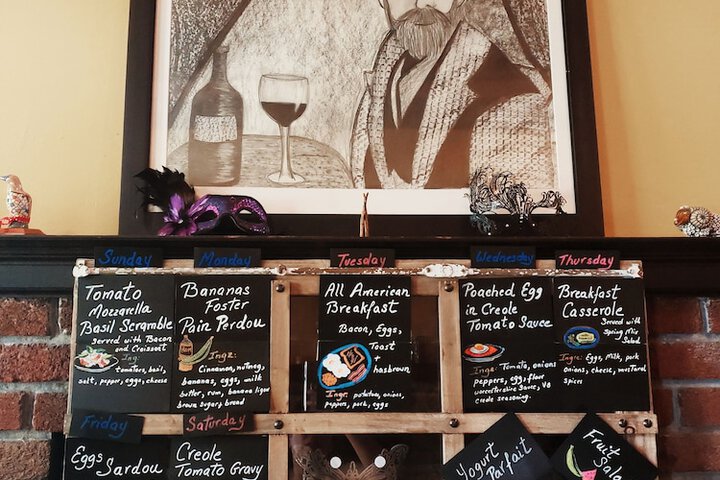 Sunday
Monday
Tuesday
Wednesday
Thursday
Tomato
Mozzarella
Basil Scramble
Served with Bacon
and Croissant
Ing:
tomatoes, basil,
salt, pepper, eggs, cheese
Bananas
Foster
Pain Perdou
Ingz:
Cinnamon, nutmeg,
bananas, eggs, milk
butter, rum, banana liquor
brown sugar, bread
All American
Breakfast
Bacon, Eggs,
Toast
+
hasbrown
Ingr: potatoes, onions,
peppers, pork, eggs
Poached Egg
in Creole
Tomato Sauce
Ing: Tomato, onions
peppers, egg, flour
worcestershire sauce, V8
creole seasoning.
Breakfast
Casserole
Served with
Spring Mix
Salad
Ingre: Eggs, Milk, pork
Onions, cheese, mustard
spices
Friday
Saturday
Eggs
Sardou
Creole
Tomato Gravy
Yogurt
Parfait
Fruit
Salad